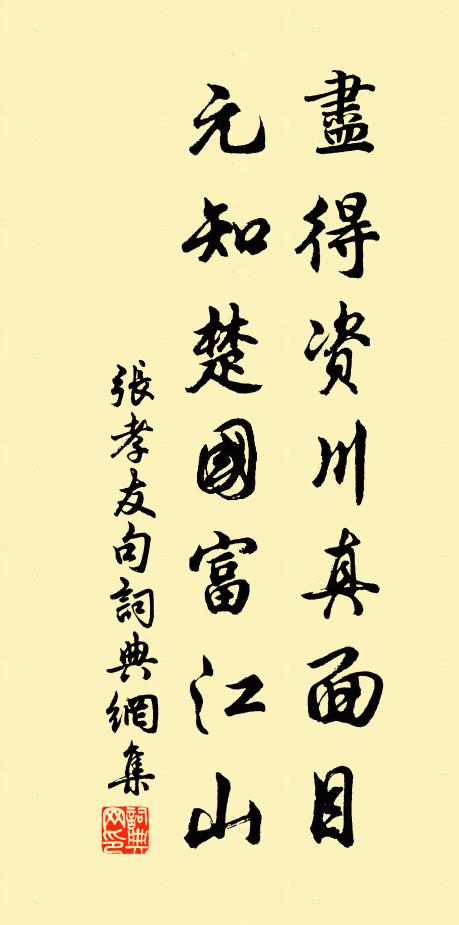 盡得資川真面目
元知楚國富江山
張孝友句詞典網集
詞典網印